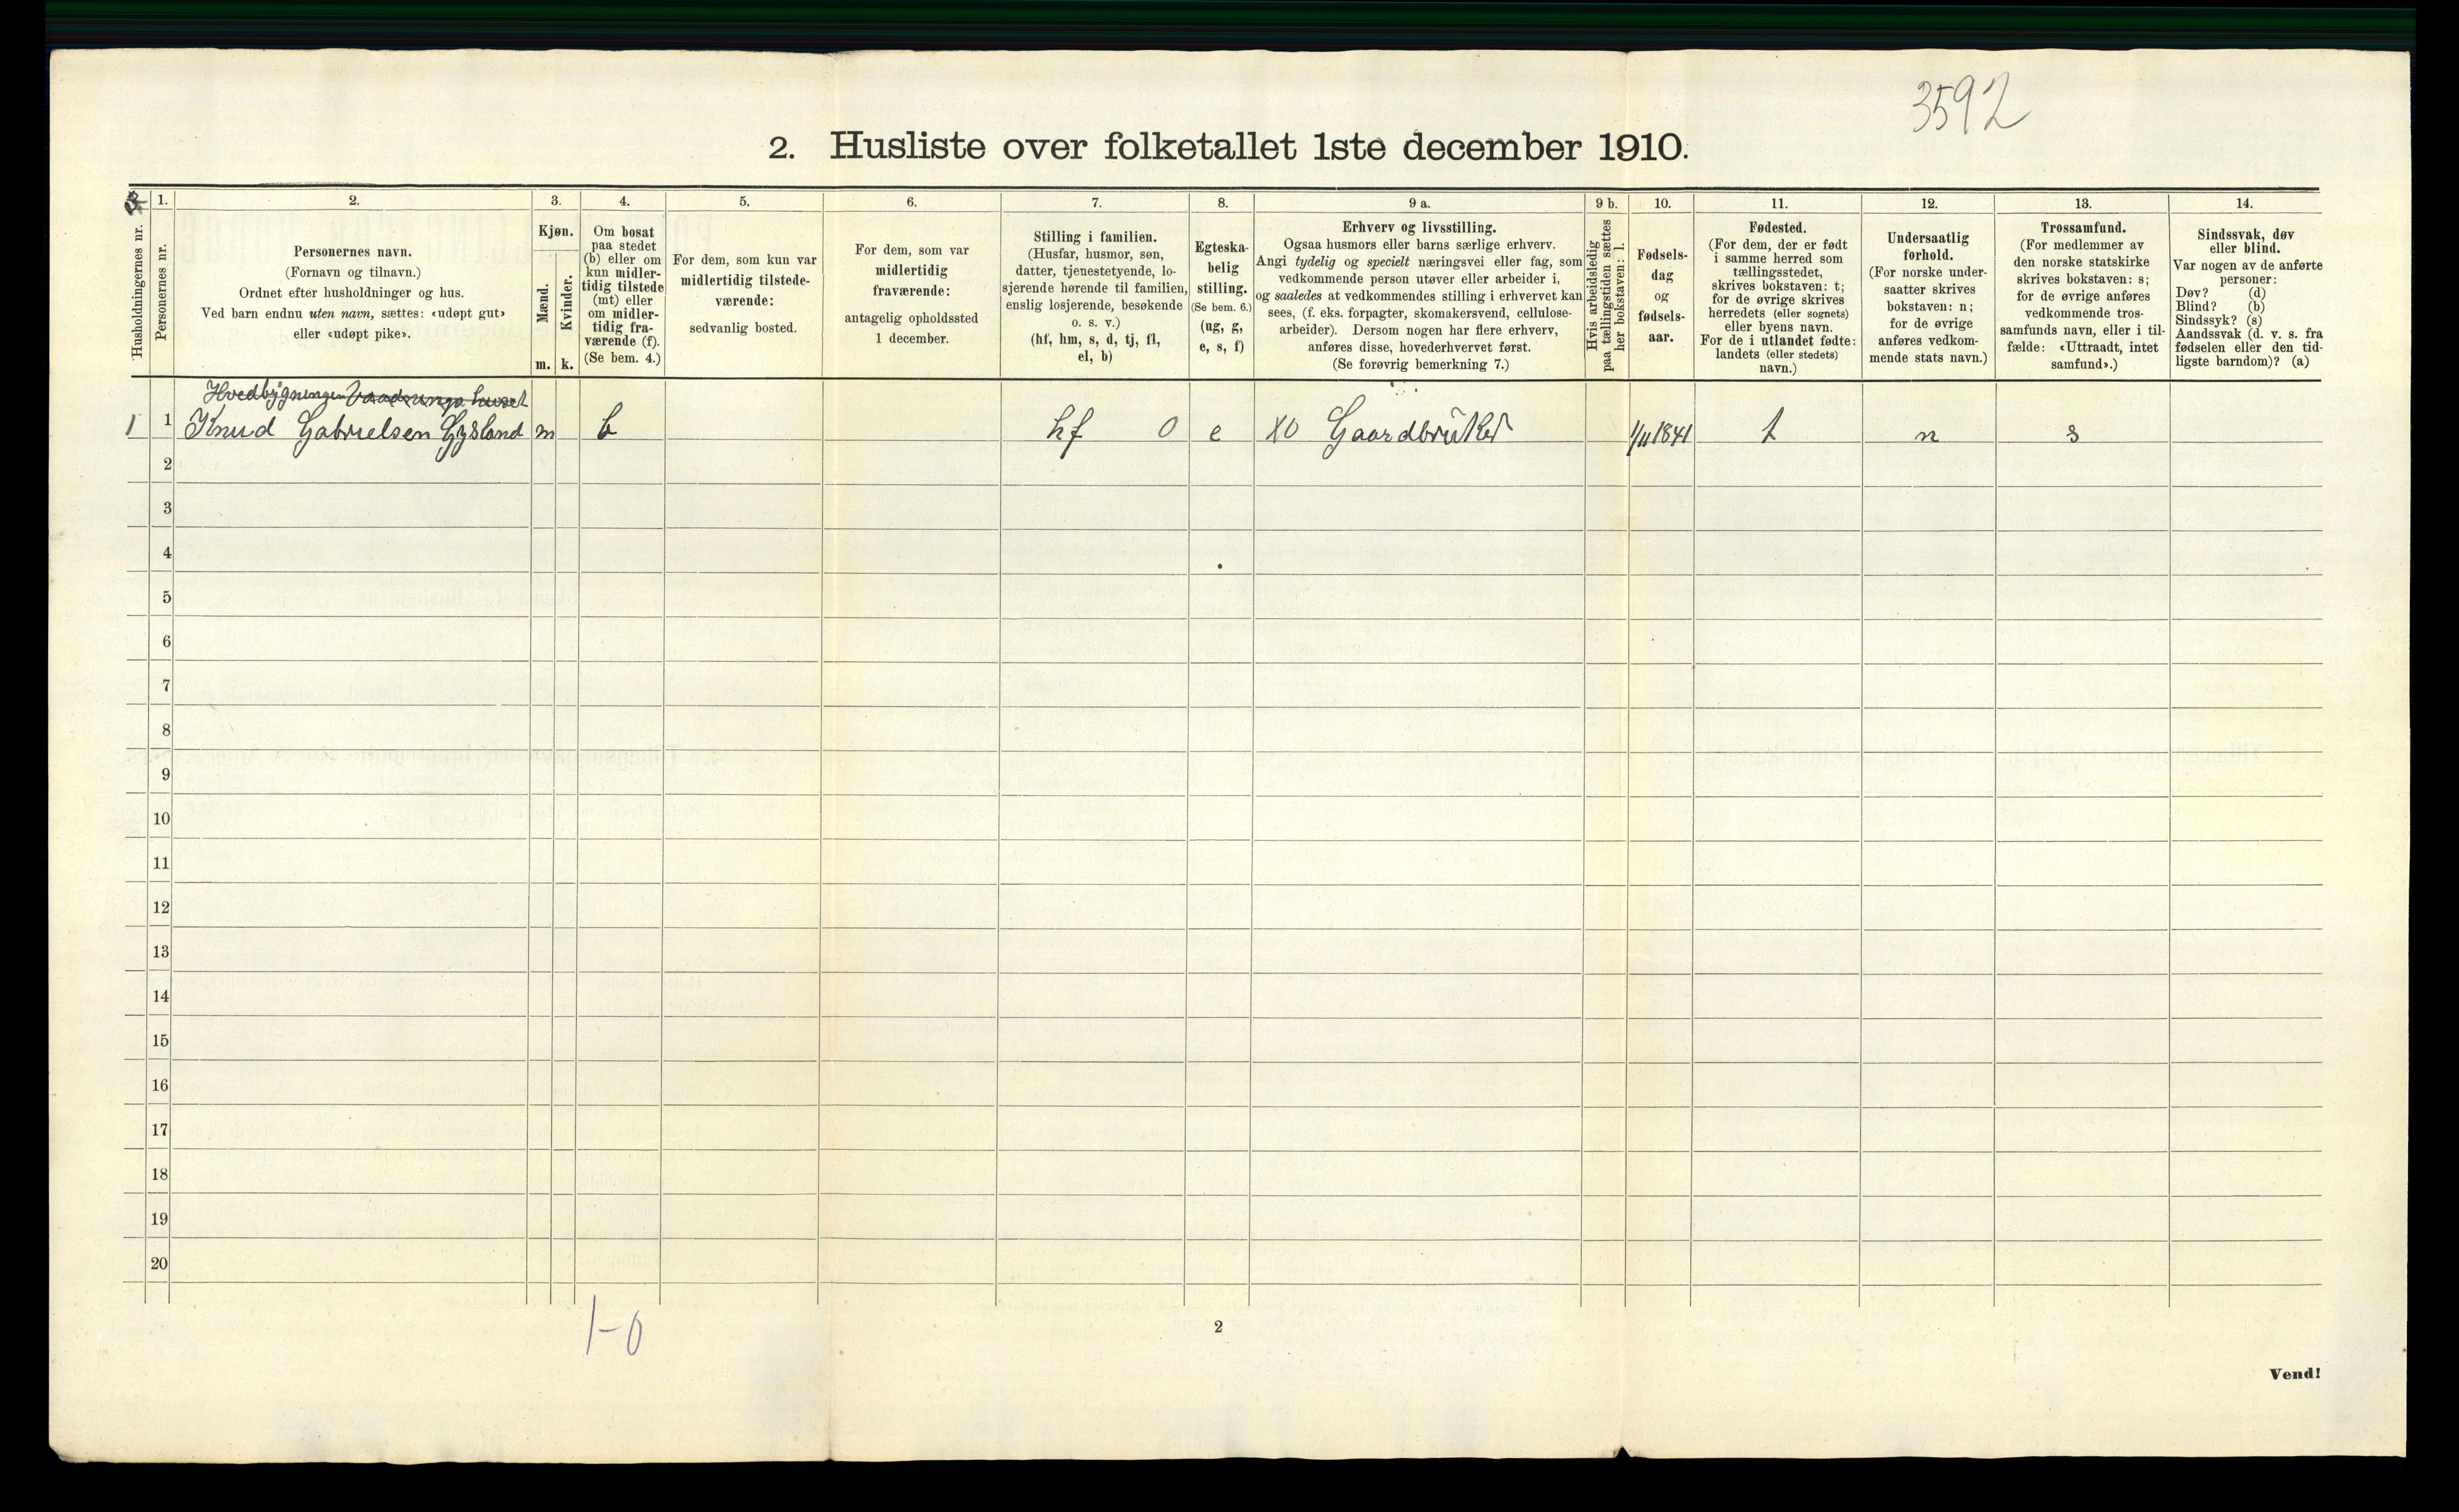 3592
2. Husliste over folketallet 1ste december 1910.
Husholdningernes nr.
1.
Personernes nr.
2.
Personernes navn.
(Fornavn og tilnavn.)
Ordnet efter husholdninger og hus.
Ved barn endnu uten navn, sættes: «udøpt gut»
eller «udøpt pike».
3.
Kjøn.
Mænd.
m.
Kvinder.
k.
4.
Om bosat
paa stedet
(b) eller om
kun midler-
tidig tilstede
(mt) eller
om midler-
tidig fra-
værende (f).
(Se bem. 4.)
5.
For dem, som kun var
midlertidig tilstede-
værende:
sedvanlig bosted.
6.
For dem, som var
midlertidig
fraværende:
antagelig opholdssted
1 december.
7.
Stilling i familien.
(Husfar, husmor, søn,
datter, tjenestetyende, lo-
sjerende hørende til familien,
enslig losjerende, besøkende
o. s. v.)
(hf, hm, s, d, tj, fl,
el, b)
8.
Egteska-
belig
stilling.
(Se bem. 6.)
(ug, g,
e, s, f)
9 a.
Erhverv og livsstilling.
Ogsaa husmors eller barns særlige erhverv.
Angi tydelig og specielt næringsvei eller fag, som
vedkommende person utøver eller arbeider i,
og saaledes at vedkommendes stilling i erhvervet kan
sees, (f. eks. forpagter, skomakersvend, cellulose-
arbeider). Dersom nogen har flere erhverv,
anføres disse, hovederhvervet først.
(Se forøvrig bemerkning 7.)
9 b.
Hvis arbeidsledig
paa tællingstiden sættes
her bokstaven: l.
10.
Fødsels-
dag
og
fødsels-
aar.
11.
Fødested.
(For dem, der er født
i samme herred som
tællingsstedet,
skrives bokstaven: t;
for de øvrige skrives
herredets (eller sognets)
eller byens navn.
For de i utlandet fødte:
landets (eller stedets)
navn.)
12.
Undersaatlig
forhold.
(For norske under-
saatter skrives
bokstaven: n;
for de øvrige
anføres vedkom-
mende stats navn.)
13.
Trossamfund.
(For medlemmer av
den norske statskirke
skrives bokstaven: s;
for de øvrige anføres
vedkommende tros-
samfunds navn, eller i til-
fælde: «Uttraadt, intet
samfund».)
14.
Sindssvak, døv
eller blind.
Var nogen av de anførte
personer:
Døv? (d)
Blind? (b)
Sindssyk? (s)
Aandssvak (d. v. s. fra
fødselen eller den tid-
ligste barndom)? (a)
Hvedbygningen
1 1 Knud Gabrielsen Gysland m b hf 0 e X0 Gaardbruker 1/11 1841 t n s
2
3
4
5
6
7
8
9
10
11
12
13
14
15
16
17
18
19
20
1-0
2
Vend!